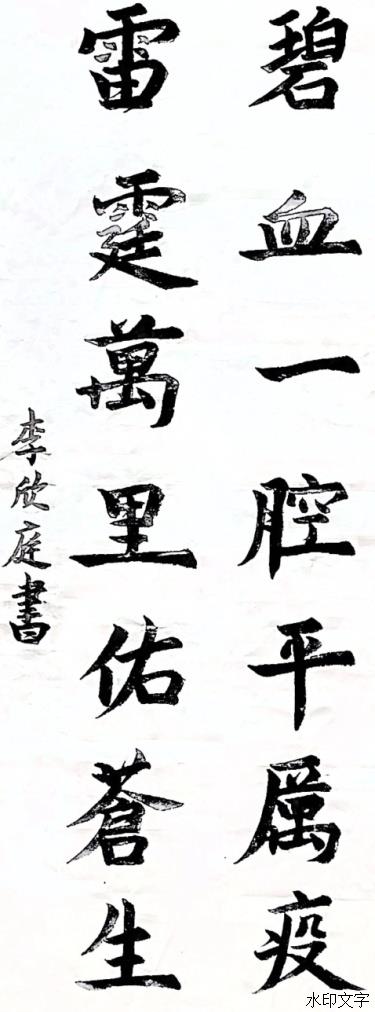 碧血一腔平厲疫
雷霆萬里佑蒼生
李欣庭書
水印文字